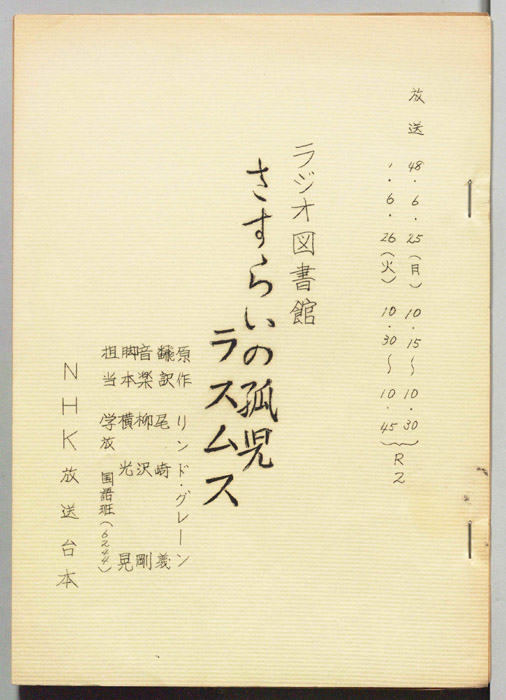 放送 48・6・25(月) 10・15〜10・30
〃・6・26(火) 10・30〜10・45 } R2
ラジオ図書館
さすらいの孤児
ラスムス
原作 リンド・グレーン
翻訳 尾崎 義
音楽 柳沢 剛
脚本 横光 晃
担当 学放 国語班(6244)
NHK放送台本